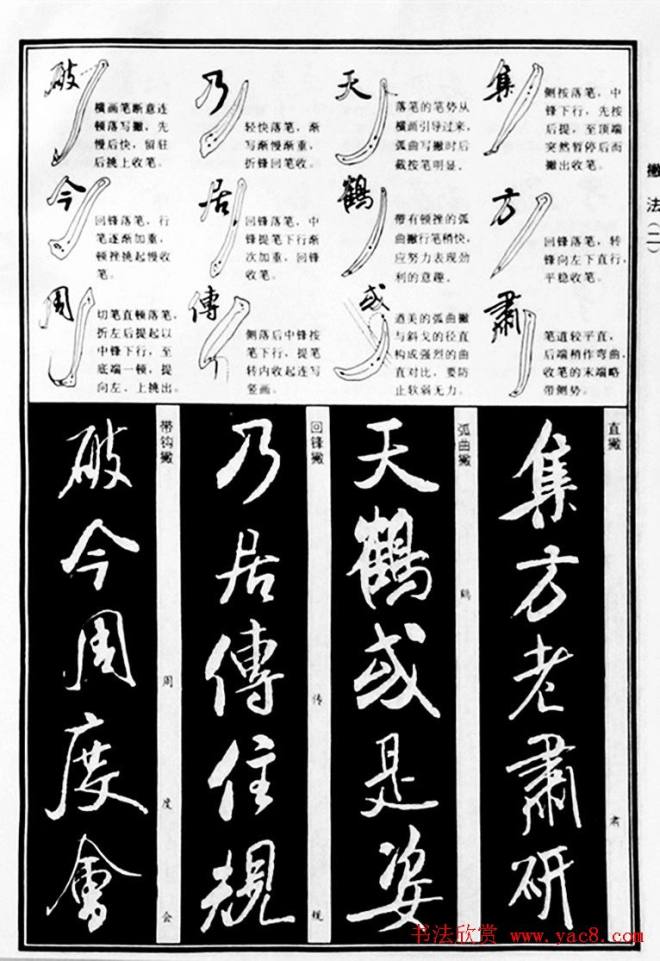 撇法(二)
集
侧按落笔，中
锋下行，先按
后提，至顶端
突然暂停后而
撇出收笔。
天
落笔的笔势从
横画引导过来，
弧曲写撇时后
截按笔明显。
乃
轻快落笔，渐
写渐慢渐重，
折锋回笔收。
破
横画笔断意连
顿落写撇，先
慢后快，留驻
后挑上收笔。
方
回锋落笔，转
锋向左下直行，
平稳收笔。
鹤
带有顿挫的弧
曲撇行笔稍快，
应努力表现劲
利的意趣。
居
回锋落笔，中
锋提笔下行渐
次加重，回锋
收笔。
今
回锋落笔，行
笔逐渐加重，
顿挫挑起慢收
笔。
肃
笔道较平直，
后端稍作弯曲，
收笔的末端略
带侧势。
或
遒美的弧曲撇
与斜戈的径直
构成强烈的曲
直对比，要防
止软弱无力。
傳
侧落后中锋按
笔下行，提笔
转内收起连写
竖画。
周
切笔直顿落笔，
折左后提起以
中锋下行，至
底端一顿，提
向左，上挑出。
直撇
集方老肅研
肃
弧曲撇
天鶴或是姿
鹤
回锋撇
乃居傳住規
传
规
带钩撇
破今周度會
周
度
会
书法欣赏 www.yac8.com